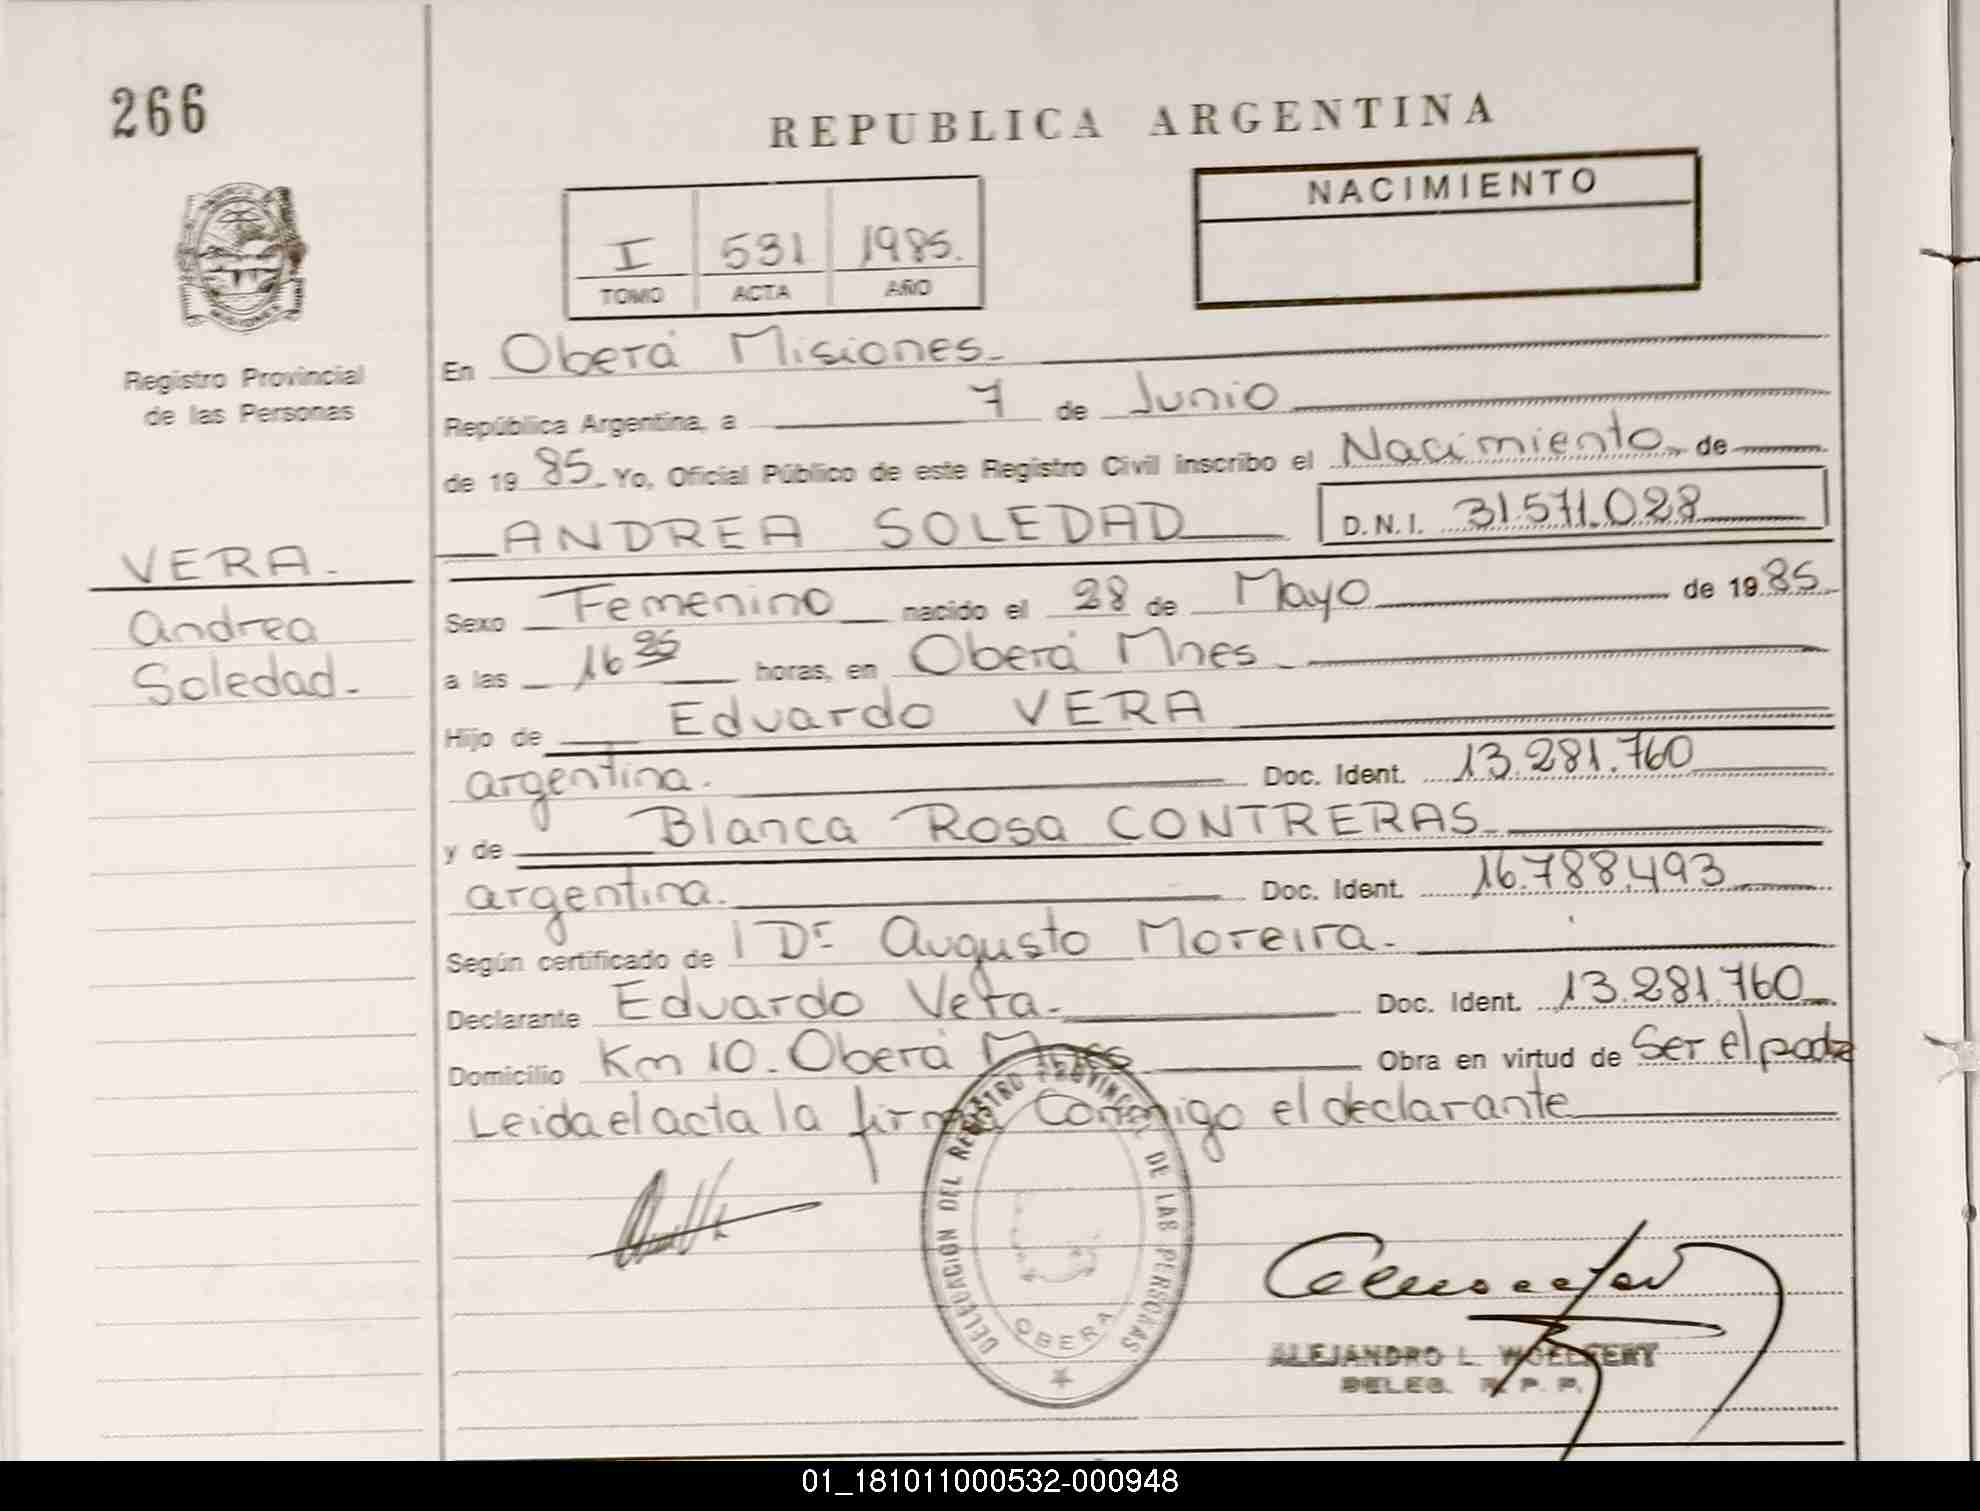 266
REPUBLICA ARGENTINA
NACIMIENTO
I 531 1985.
TOMO ACTA AÑO
MISIONES
Registro Provincial
de las Personas
VERA.
Andrea
Soledad.
En Oberá Misiones.
República Argentina, a 7 de Junio
de 1985. Yo, Oficial Público de este Registro Civil inscribo el Nacimiento de
ANDREA SOLEDAD D.N.I. 31.571.028
Sexo Femenino nacido el 28 de Mayo de 1985.
a las 16 horas, en Oberá Mnes.
Hijo de Eduardo VERA
argentina. Doc. Ident. 13.281.760
y de Blanca Rosa CONTRERAS
argentina. Doc. Ident. 16.788.493
Según certificado de Dr Augusto Moreira.
Declarante Eduardo Vera. Doc. Ident. 13.281.760
Domicilio Km 10. Oberá Mnes Obra en virtud de Ser el padre
Leida el acta la firma Conmigo el declarante
DELEGACION DEL REGISTRO PROVINCIAL DE LAS PERSONAS
OBERA
ALEJANDRO L. WOELFERT
DELEG. R. P. P.
01_181011000532-000948